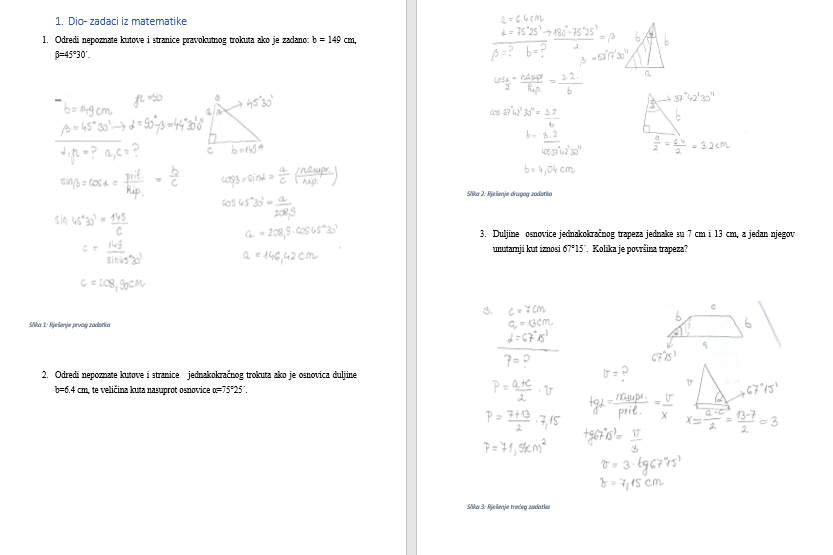 1. Dio- zadaci iz matematike
1. Odredi nepoznate kutove i stranice pravokutnog trokuta ako je zadano: b = 149 cm,
β=45°30´.
γ=90
b=149cm
45°30'
β=45°30'→α=90°-β=44°30'
α,γ=? a,c=?
C b=149
sinβ=cosα= pril. / hip. = b / c
cosβ=sinα= a / c (nasupr. / hip.)
sin 45°30' = 149 / c
cos 45°30' = a / 208,9
c = 149 / sin45°30'
a = 208,9·cos45°30'
a = 146,42 cm
c = 208,90cm
Slika 1: Rješenje prvog zadatka
2. Odredi nepoznate kutove i stranice jednakokračnog trokuta ako je osnovica duljine
b=6.4 cm, te veličina kuta nasuprot osnovice α=75°25´.
a = 6.4cm
α = 75°25' → 180°-75°25' / 2 = β
β=? b=?
β=52°17'30"
b b
a
cos α/2 = nasupr. / hip. = 3.2. / b
37°42'30"
b
cos 37°42'30" = 3.2 / b
b = 3.2 / cos37°42'30"
a / 2 = 6.4 / 2 = 3.2cm
b = 4,04 cm
Slika 2: Rješenje drugog zadatka
3. Duljine osnovice jednakokračnog trapeza jednake su 7 cm i 13 cm, a jedan njegov
unutarnji kut iznosi 67°15´. Kolika je površina trapeza?
3. c=7cm
a=13cm
α=67°15'
P=?
c
b b
a
67°15'
v=?
P = a+c / 2 · v
tgα = nasupr. / pril. = v / x
v
67°15'
x = a-c / 2 = 13-7 / 2 = 3
P = 7+13 / 2 · 7,15
tg67°15' = v / 3
P=71,5cm²
v = 3·tg67°15'
v = 7,15 cm
Slika 3: Rješenje trećeg zadatka